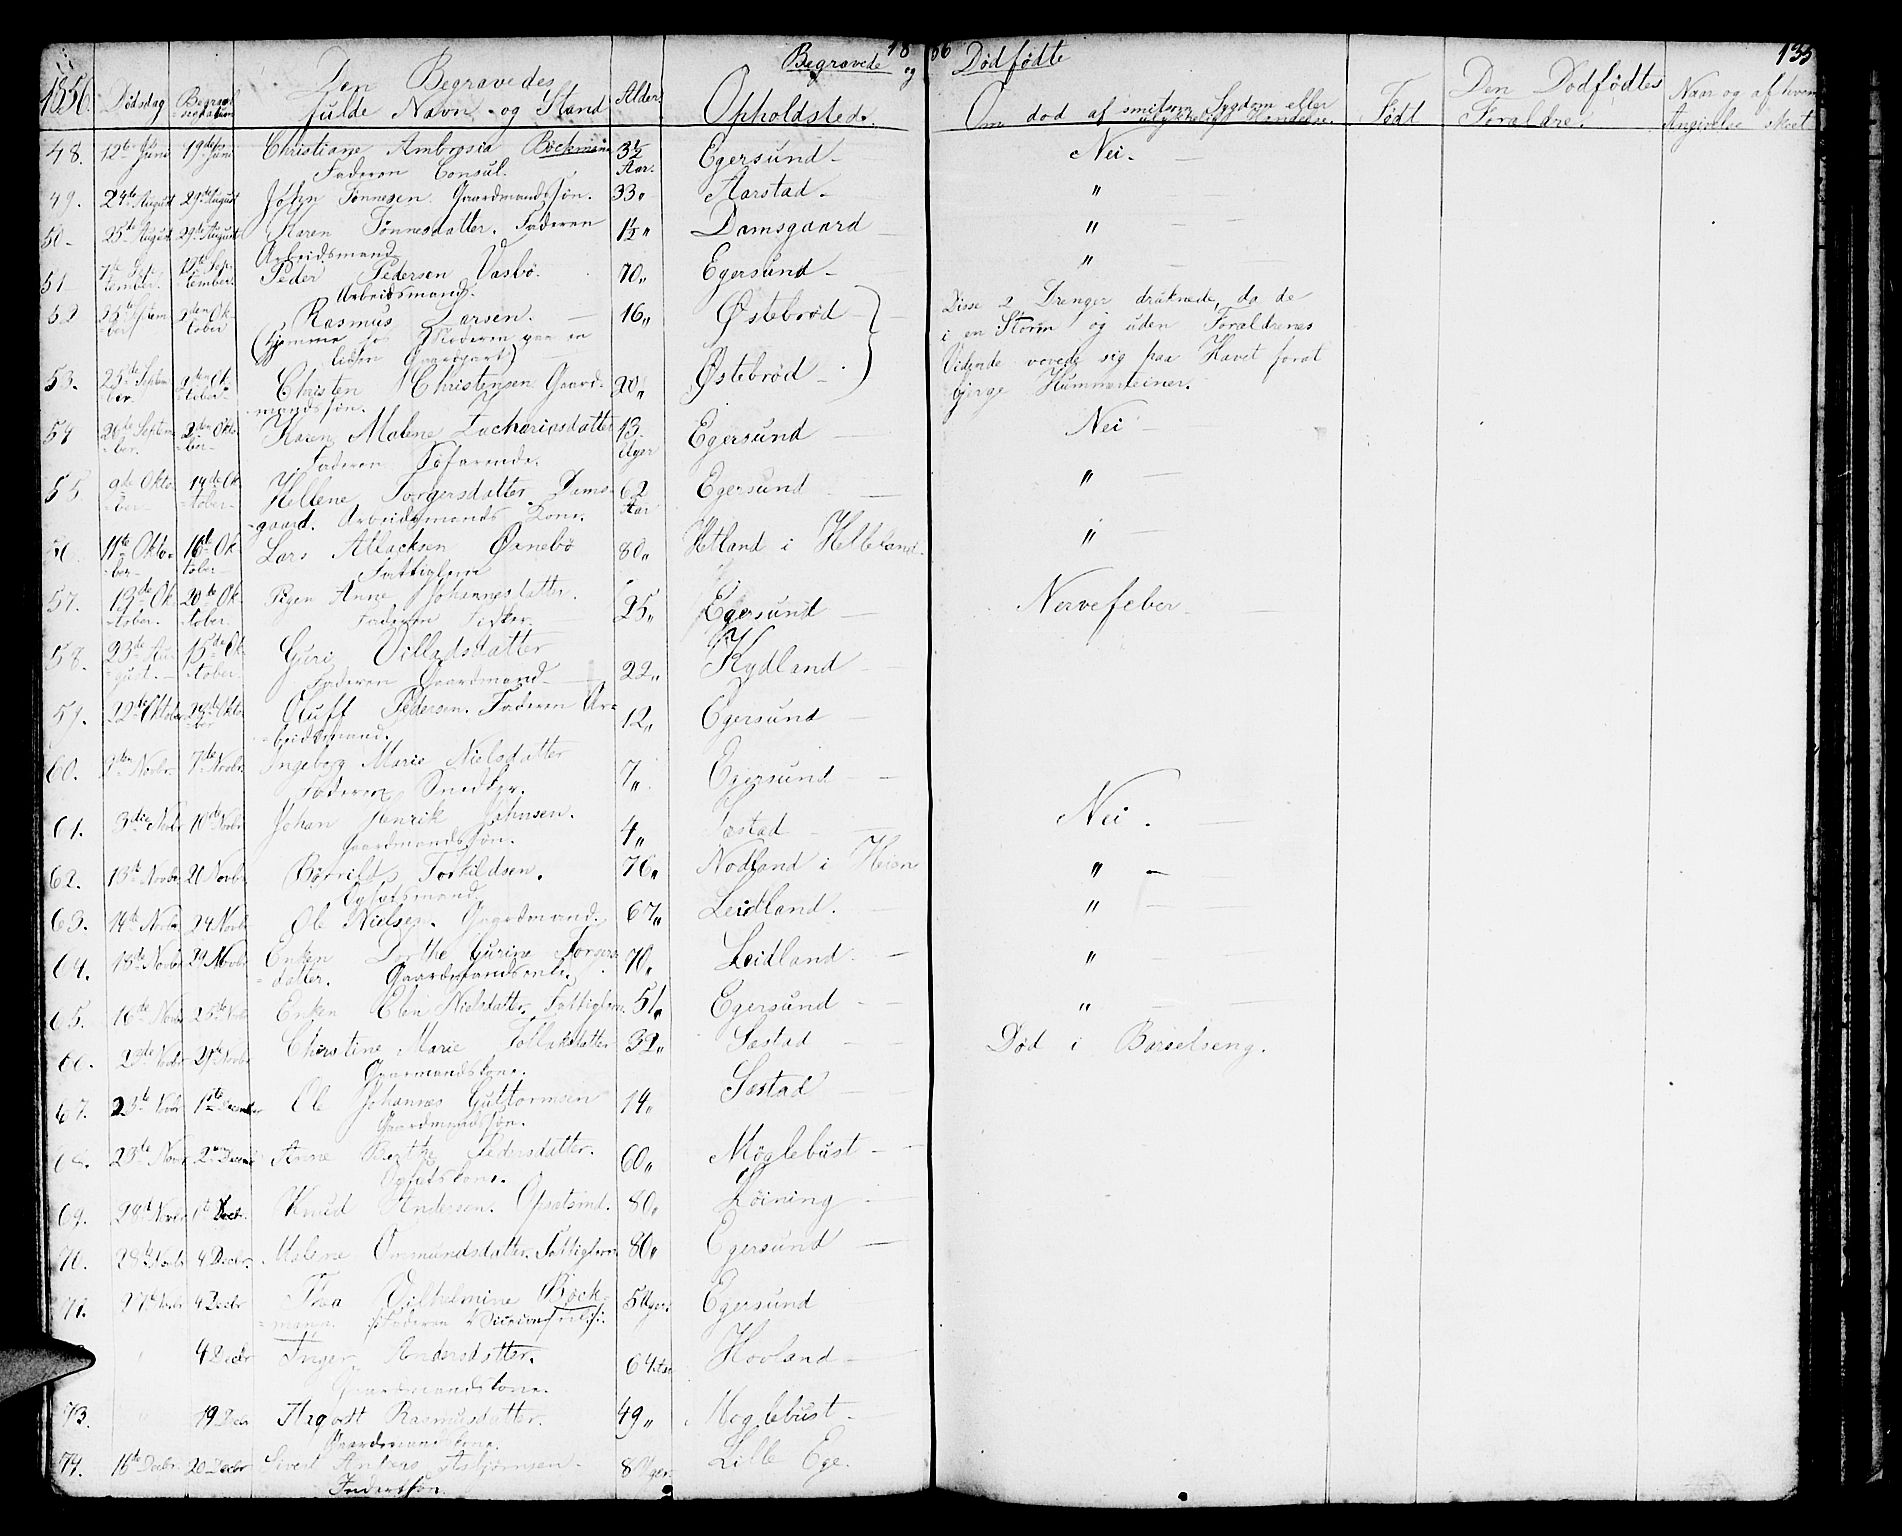 Begravede 18 og 56 Dødfødte 135
1856. Dødsdag Begravelsesdatum Den Begravedes fulde Navn og Stand Alder. Opholdsted. Om død af smitsom Sygdom eller ulykkelig Hændelse. Født Den Dødfødtes Forældre. Naar og af hvem Angivelse skeet
48. 12te Juni 19de Juni Christiane Ambrosia Böckmann 3½ Aar. Egersund - Nei. -
Faderen Consul.
49. 24de August 29de August John Tønnesen Gaardmandssøn. 33 " Aarstad - "
50 - 25de August 29de August Karen Tønnesdatter. Faderen 1½ " Damsgaard - "
Arbeidsmand
51 7de September. 12te September. Peder Pedersen Vasbø. 70 " Egersund - "
Arbeidsmand.
52 25de September 2den Oktober Rasmus Larsen. - 16 " Østebrød - Disse 2 Drenger druknede, da de
i en Storm og uden Forældrenes
53. 25de September. 2den Oktober. Christen Christensen Gaard- 20 " Østebrød - Vidende vovede sig paa Havet forat
mandssøn. bjerge Hummerteiner.
54 26de September. 2den Oktober - Karen Malene Zachariasdatter 13 Uger Egersund - Nei -
Faderen Søfarende.
55. 9de Oktober - 14de Oktober - Hellene Torgersdatter Dams- 62 Aar Egersund - "
gaard. Arbeidsmands Kone.
56. 11te Oktober - 16de Oktober - Lars Atlacksen Ørnebø 80 " Hetland i Helleland - "
Fattiglem
57. 13de Oktober. 20de Oktober. Pigen Anne Johannesdatter. 25 " Egersund - Nervefeber -
Faderen Fisker.
58. 23de August. - 15de Oktober - Guri Villadsdatter 22 " Kydland -
Faderen Gaardmand -
59. 22de Oktober 29de Oktober Oluff Pedersen. Faderen Ar- 12 " Egersund -
beidsmand.
60. 1ste Novbr. 7de Novbr. Ingeborg Marie Nielsdatter 7 " Egersund -
Faderen Snedker.
61. 3die Novbr 10de Novbr. Johan Henrik Johnsen. 4 " Sæstad - Nei. -
Gaardmandssøn.
62. 13de Novbr 21 Novbr. Børrild Torkildsen. 76 " Nodland i Heien " -
Opsatsmand.
63. 14de Novbr 24 Novbr Ole Nielsen. Gaardmand. 67 " Leidland. - "
64. 18de Novbr 24 Novbr Enken Dorthe Gurine Torgers- 70 " Leidland. - "
datter. Gaardmandsenke.
65. 16de Novbr 25de Novbr Enken Elen Nielsdatter. Fattiglem. 51 " Egersund - "
66. 23de Novbr 29de Novbr Christine Marie Tollaksdatter 32 " Sæstad - Død i Barselseng.
Gaarmandskone.
67. 23de Novbr 1ste December Ole Johannes Guttormsen 14 " Sæstad -
Gaardmandssøn.
68. 23de Novbr 2den December Anne Berthe Pedersdatter. 60 " Møglebust -
Opsatskone.
69. 28de Novbr 1ste Decbr. Knud Andersen. Opsatsmd. 80 " Løining -
70. 28de Novbr 4 Decbr. Malene Omundsdatter. Fattiglem 80 " Egersund -
71. 27de Novbr 4 Decbr Thea Vilhelmine Böck- 5 Uger Egersund
mann. Faderen
" 4 Decbr Inger Andersdatter. 64 Aar Hovland -
Gaardmandskone.
73. " 19 Decbr Aagodt Rasmusdatter. 49 " Møglebust -
Gaardmandskone.
74. 15de Decbr. 20 Decbr Sivert Antons Asbjørnsen - 8 Uger Lille Ege.